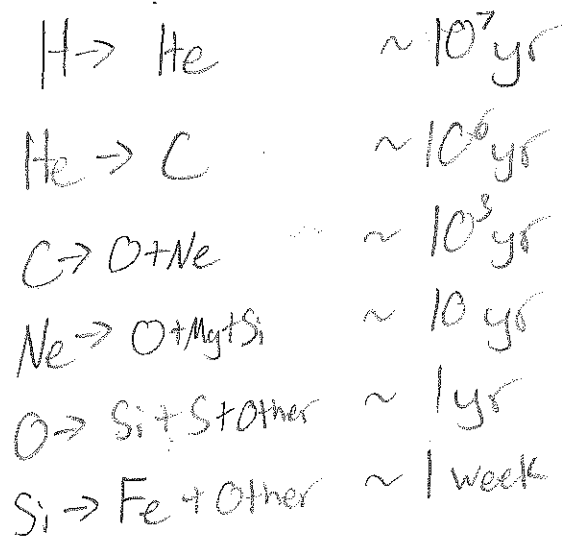 H → He ~ 10⁷ yr
He → C ~ 10⁶ yr
C → O+Ne ~ 10³ yr
Ne → O+Mg+Si ~ 10 yr
O → Si+S+Other ~ 1 yr
Si → Fe + Other ~ 1 week